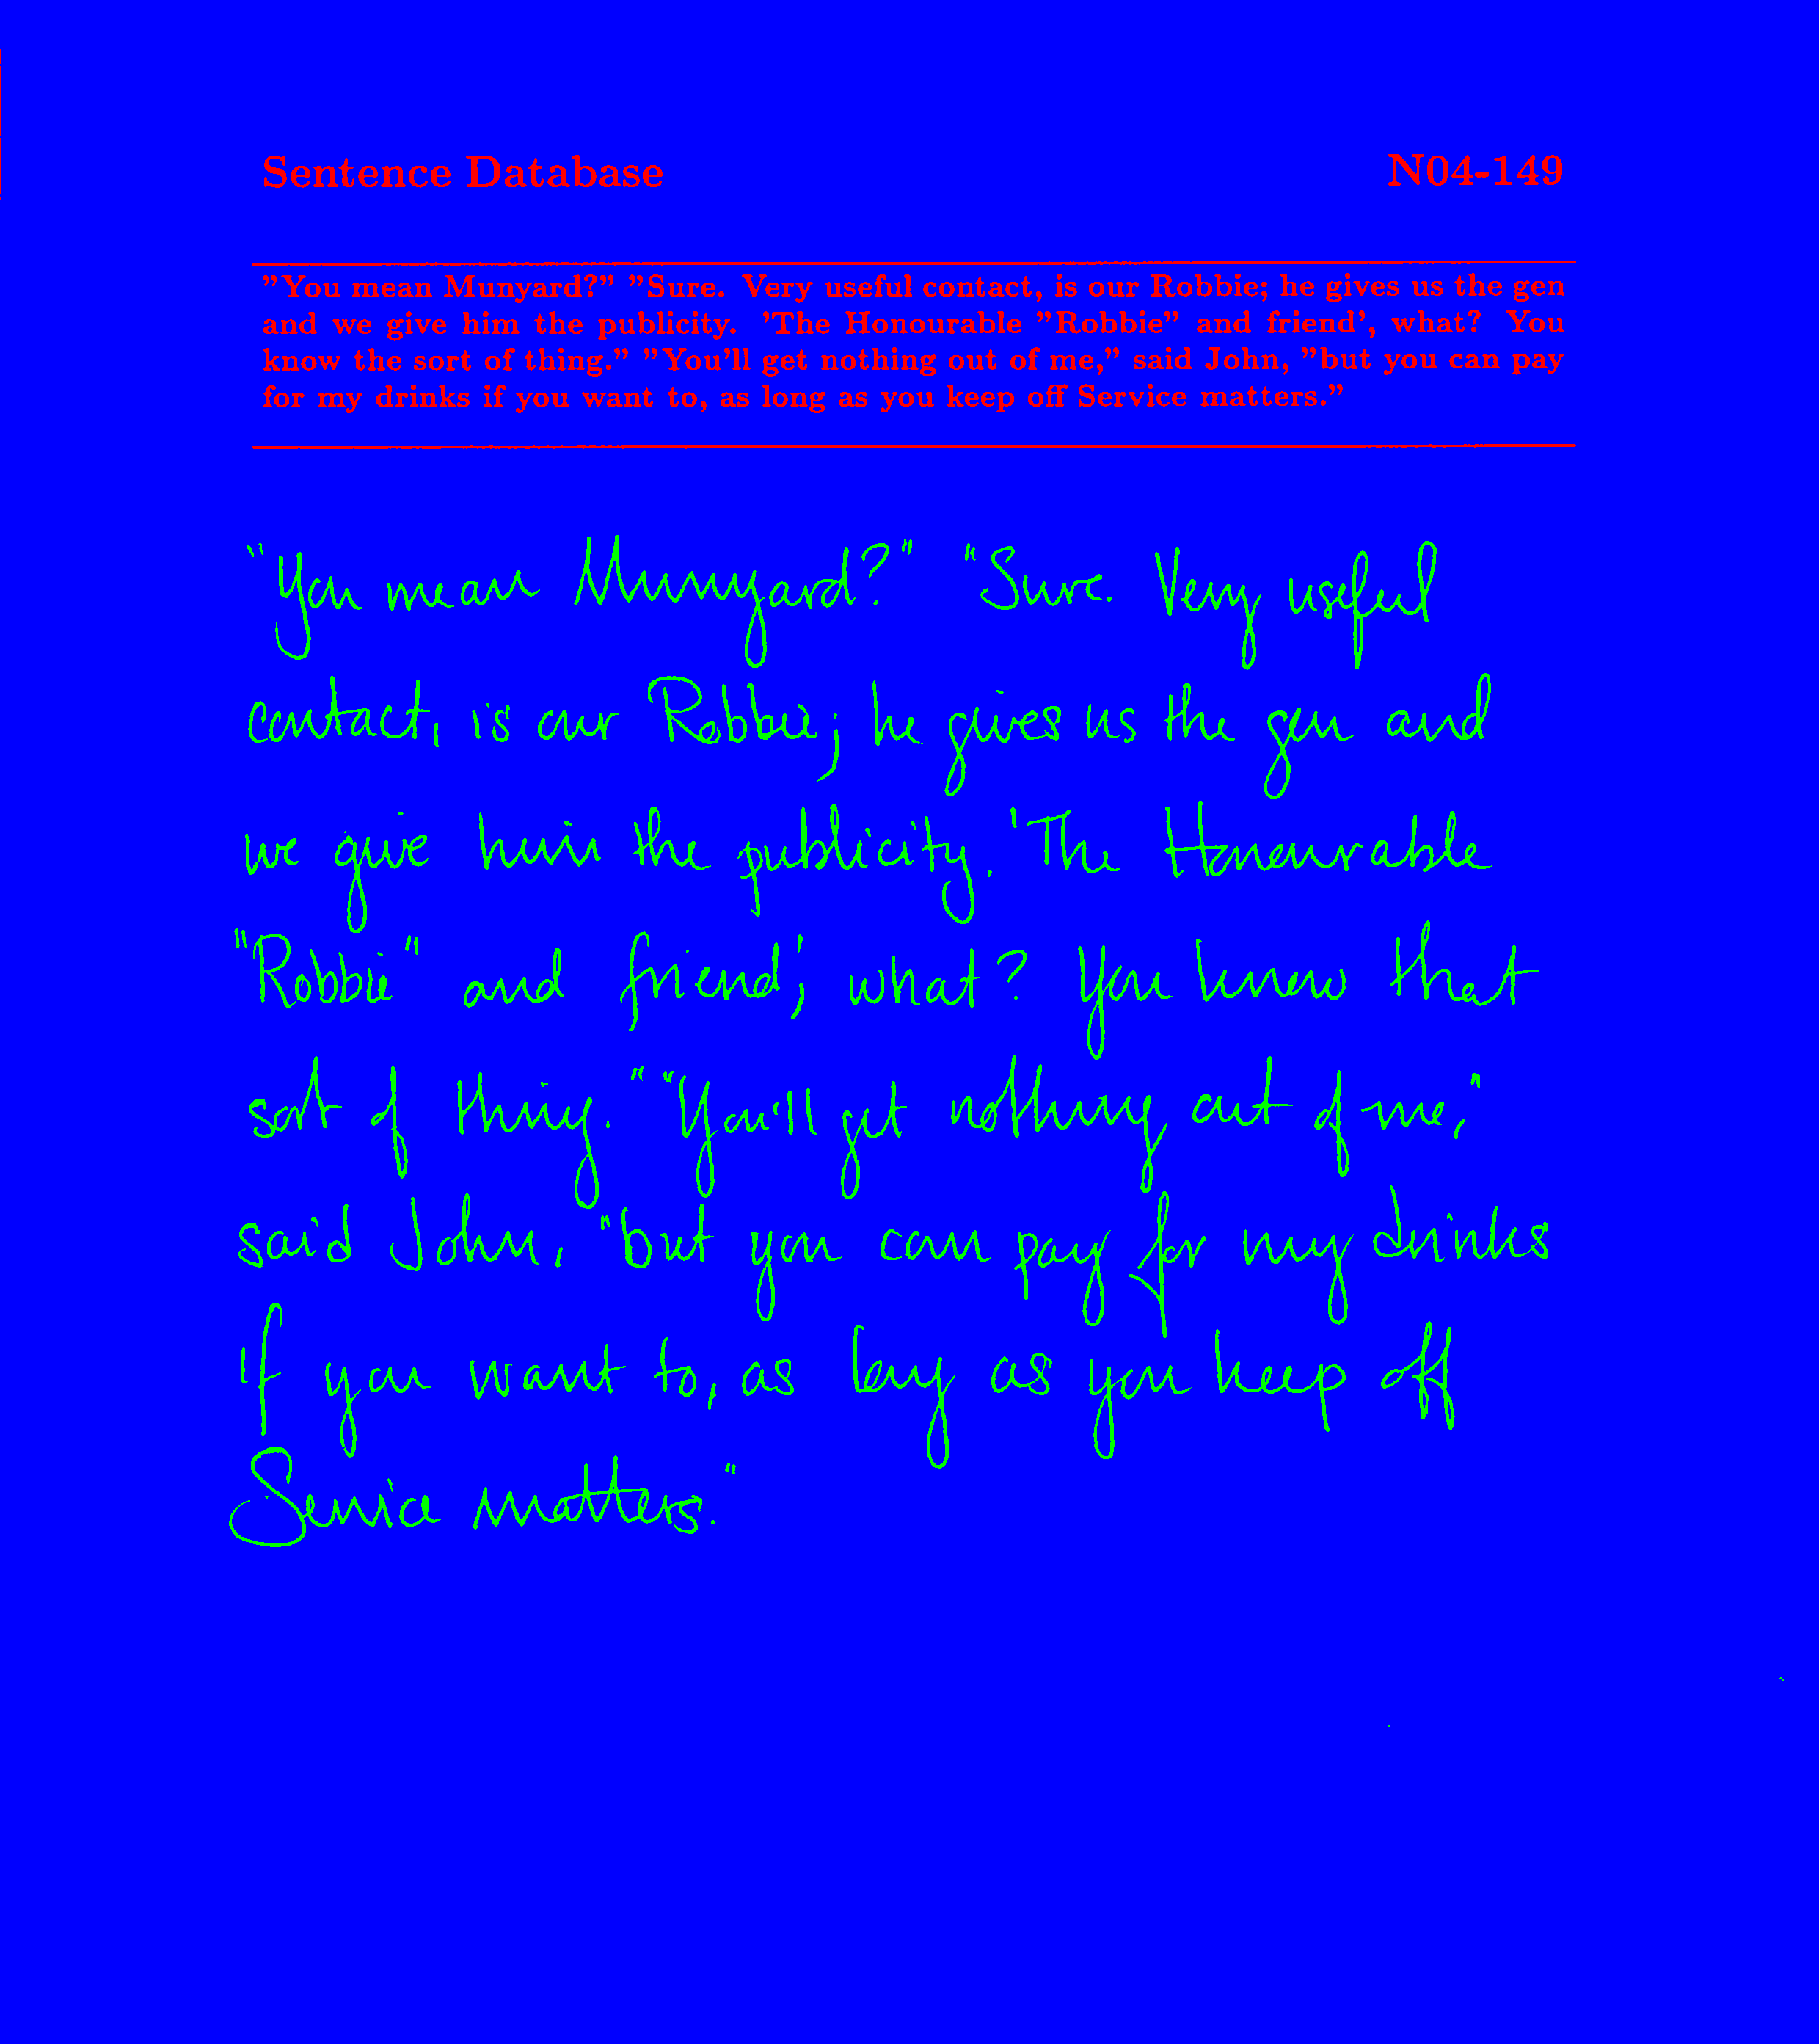 Sentence Database N04-149
"You mean Munyard?" "Sure. Very useful contact, is our Robbie; he gives us the gen
and we give him the publicity. 'The Honourable "Robbie" and friend', what? You
know the sort of thing." "You'll get nothing out of me," said John, "but you can pay
for my drinks if you want to, as long as you keep off Service matters."
"You mean Munyard?" "Sure. Very useful
contact, is our Robbie; he gives us the gen and
we give him the publicity. 'The Honourable
"Robbie" and friend', what? You know that
sort of thing." "You'll get nothing out of me,"
said John, "but you can pay for my drinks
if you want to, as long as you keep off
Service matters."